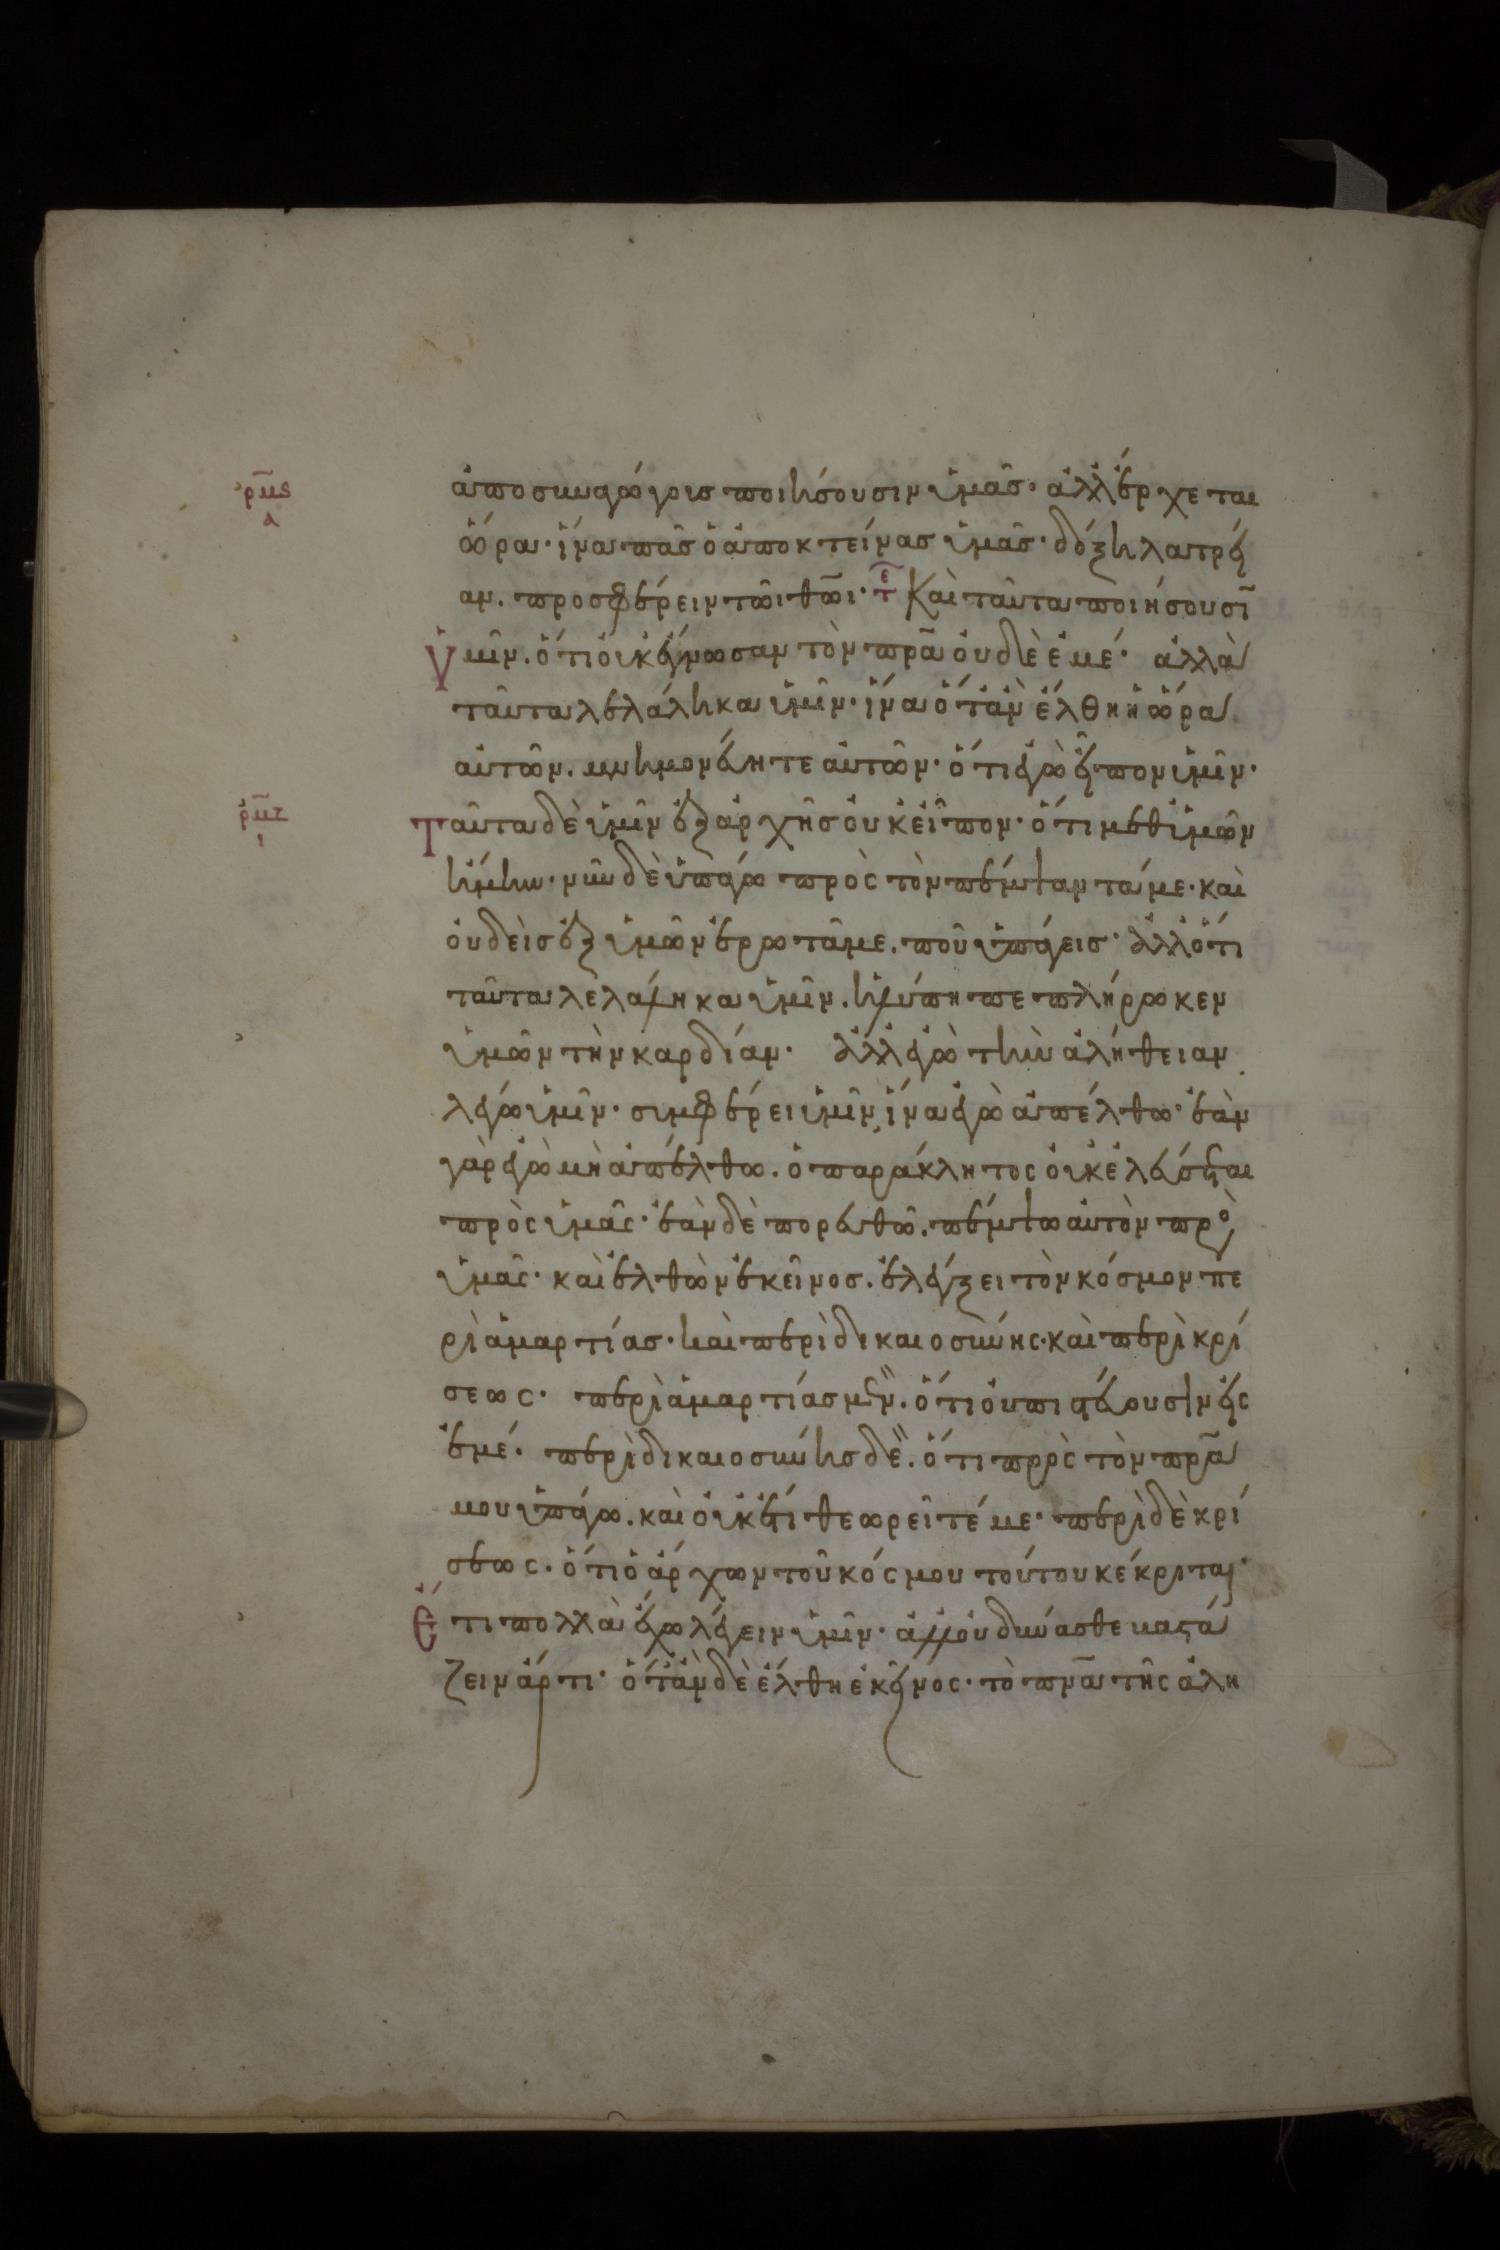 ρμς
α
ἀποσυναγώγους ποιήσουσιν ὑμᾶς· ἀλλ ἔρχεται
ὥρα· ἵνα πᾶς ὁ ἀποκτείνας ὑμᾶς· δόξη λατρεί
αν. προσφέρειν τῶι θῶι· τε Καὶ ταῦτα ποιήσουσῖ
ὑμῖν. ὅτι οὐκ ἔγνωσαν τὸν πρᾶ οὐδὲ ἐμέ· ἀλλὰ
ταῦτα λελάληκα ὑμῖν· ἵνα ὅταν ἔλθη ἡ ὥρα
αὐτῶν. μνημονεύητε αὐτῶν· ὅτι ἐγὼ εἶπον ὑμῖν·
ρμζ
ι
Ταῦτα δὲ ὑμῖν ἐξ ἀρχῆς οὐκ εἶπον· ὅτι μεθ ὑμῶν
ἤμην· νῦν δὲ ὑπάγω πρὸς τὸν πέμψαντά με· καὶ
οὐδεὶς ἐξ ὑμῶν ἐρωτᾶ με. ποῦ ὑπάγεις· ἀλλ ὅτι
ταῦτα λελάληκα ὑμῖν. ἡ λύπη πεπλήρωκεν
ὑμῶν τὴν καρδίαν· ἀλλ ἐγὼ τὴν ἀλήθειαν
λέγω ὑμῖν· συμφέρει ὑμῖν, ἵνα ἐγὼ ἀπέλθω· ἐὰν
γὰρ ἐγὼ μὴ ἀπέλθω. ὁ παράκλητος οὐκ ἐλεύσεται
πρὸς ὑμᾶς· ἐὰν δὲ πορευθῶ. πέμψω αὐτὸν πρὸ
ὑμᾶς· καὶ ἐλθὼν ἐκεῖνος. ἐλέγξει τὸν κόσμον πε
ρὶ ἁμαρτίας· καὶ περὶ δικαιοσύνης· καὶ περὶ κρί
σεως· περὶ ἁμαρτίας μὲν. ὅτι οὐ πιστεύουσιν εἰς
ἐμέ· περὶ δικαιοσύνης δὲ. ὅτι πρὸς τὸν πρᾶ
μου ὑπάγω. καὶ οὐκ ἔτι θεωρεῖτέ με· περὶ δὲ κρί
σεως· ὅτι ὁ ἄρχων τοῦ κόσμου τούτου κέκριται·
Ἔτι πολλὰ ἔχω λέγειν ὑμῖν· ἀλλ οὐ δύνασθε βαστά
ζειν ἄρτι· ὅταν δὲ ἔλθη ἐκεῖνος· τὸ πνᾶ τῆς ἀλη